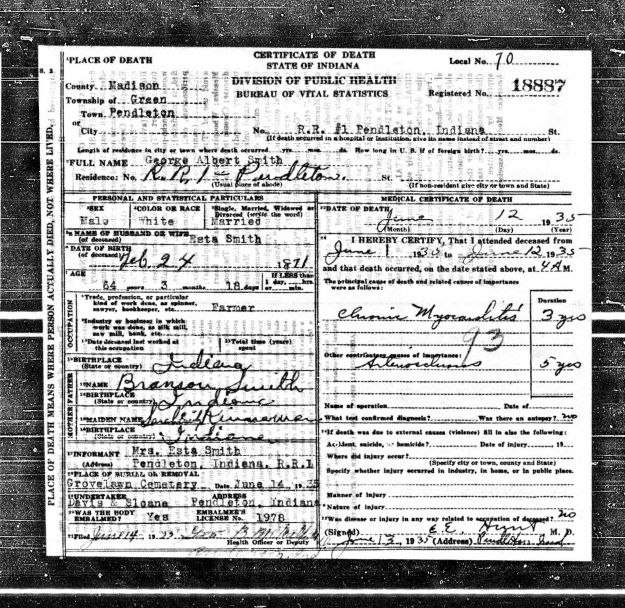 CERTIFICATE OF DEATH
STATE OF INDIANA
DIVISION OF PUBLIC HEALTH
BUREAU OF VITAL STATISTICS
Local No. 70
Registered No. 18887
PLACE OF DEATH
County Madison
Township of Green
Town Pendleton
or
City No. R.R. #1 Pendleton, Indiana St.
(If death occurred in a hospital or institution, give its name instead of street and number)
Length of residence in city or town where death occurred yrs. mos. ds. How long in U. S. if of foreign birth? yrs. mos. ds.
FULL NAME George Albert Smith
Residence: No. R.R. 1 - Pendleton. St.
(Usual place of abode) (If non-resident give city or town and State)
PERSONAL AND STATISTICAL PARTICULARS
SEX COLOR OR RACE Single, Married, Widowed or Divorced (write the word)
Male White Married
NAME OF HUSBAND OR WIFE
(of deceased) Esta Smith
DATE OF BIRTH
(of deceased) Feb 24 1871
AGE If LESS than
64 years 3 months 18 days 1 day, hrs. or min.
OCCUPATION
Trade, profession, or particular
kind of work done, as spinner,
sawyer, bookkeeper, etc. Farmer
Industry or business in which
work was done, as silk mill,
saw mill, bank, etc.
Date deceased last worked at
this occupation
Total time (years)
spent
BIRTHPLACE
(State or country) Indiana
FATHER
NAME Branson Smith
BIRTHPLACE
(State or country) Indiana
MOTHER
MAIDEN NAME
BIRTHPLACE
(State or country) Indiana
INFORMANT Mrs. Esta Smith
(Address) Pendleton, Indiana, R.R.1
PLACE OF BURIAL OR REMOVAL
Grovelawn Cemetery Date June 14, 1935
UNDERTAKER ADDRESS
Davis & Sloane Pendleton, Indiana
WAS THE BODY
EMBALMED? Yes
EMBALMER'S
LICENSE No. 1978
Filed June 14 1935
Health Officer or Deputy
MEDICAL CERTIFICATE OF DEATH
DATE OF DEATH June 12 1935
(Month) (Day) (Year)
I HEREBY CERTIFY, That I attended deceased from
June 1 1930 to June 12 1935
and that death occurred, on the date stated above, at 4 A M.
The principal cause of death and related causes of importance
were as follows:
Duration
Chronic Myocarditis 3 yrs
93
Other contributory causes of importance:
Arteriosclerosis 5 yrs
Name of operation Date of
What test confirmed diagnosis? Was there an autopsy? no
If death was due to external causes (violence) fill in also the following:
Accident, suicide, or homicide? Date of injury 19
Where did injury occur?
(Specify city or town, county and State)
Specify whether injury occurred in industry, in home, or in public place.
Manner of injury
Nature of injury
Was disease or injury in any way related to occupation of deceased? no
(Signed) E.E. M. D.
June 1935 (Address) Pendleton Ind
PLACE OF DEATH MEANS WHERE PERSON ACTUALLY DIED, NOT WHERE LIVED.